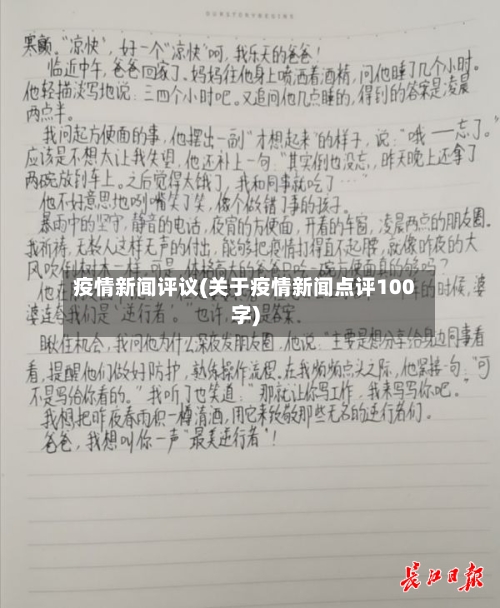 寒颤。"凉快"，好一个"凉快"呵，我乐天的爸爸！
临近中午，爸爸回家了。妈妈往他身上喷洒着酒精，问他睡了几个小时。
他轻描淡写地说：三四个小时吧。又追问他几点睡的，得到的答案是凌晨
两点半。
我问起方便面的事，他摆出一副"才想起来"的样子，说："哦——忘了。"
应该是不想太让我失望，他还补上一句："其实倒也没忘，昨天晚上还拿了
两碗放到车上。之后觉得太饿了，我和同事就吃了……"
他不好意思地咧嘴笑了笑，像个做错了事的孩子。
暴雨中的坚守，静音的电话，夜宵的方便面，开着的车窗，凌晨两点的朋友圈。
我祈祷，无数人这样无声的付出，能够把疫情打得直不起腰，就像昨夜的大
风吹倒树木一样。可是，体格高大的爸爸
疫情新闻评议(关于疫情新闻点评100
字)
的时候，婆
婆连
我们是"逆行者"。"也许，
是答案。
瞅住机会，我问他为什么深夜发朋友圈，他说："主要是想分享给身边同事看
看，提醒他们做好防护，熟练操作流程。在我频频点头之际，他坚接一句："可
不是写给你看的。"我听了也笑道："那就让你写工作，我来写写你吧。"
我想把昨夜春雨积一樽清酒，用它来致敬那些无名的逆行者们。
爸爸，我想叫你一声"最美逆行者"！
长江日报